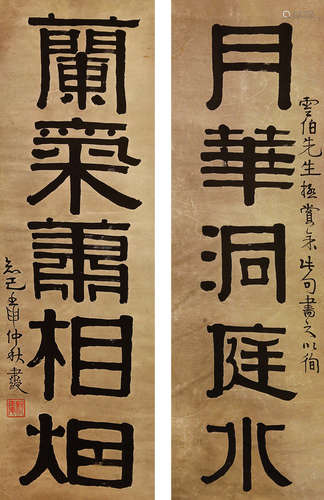 月華洞庭水
雲伯先生極賞余此句書之以徇
蘭氣蕭相烟
己壬申仲秋